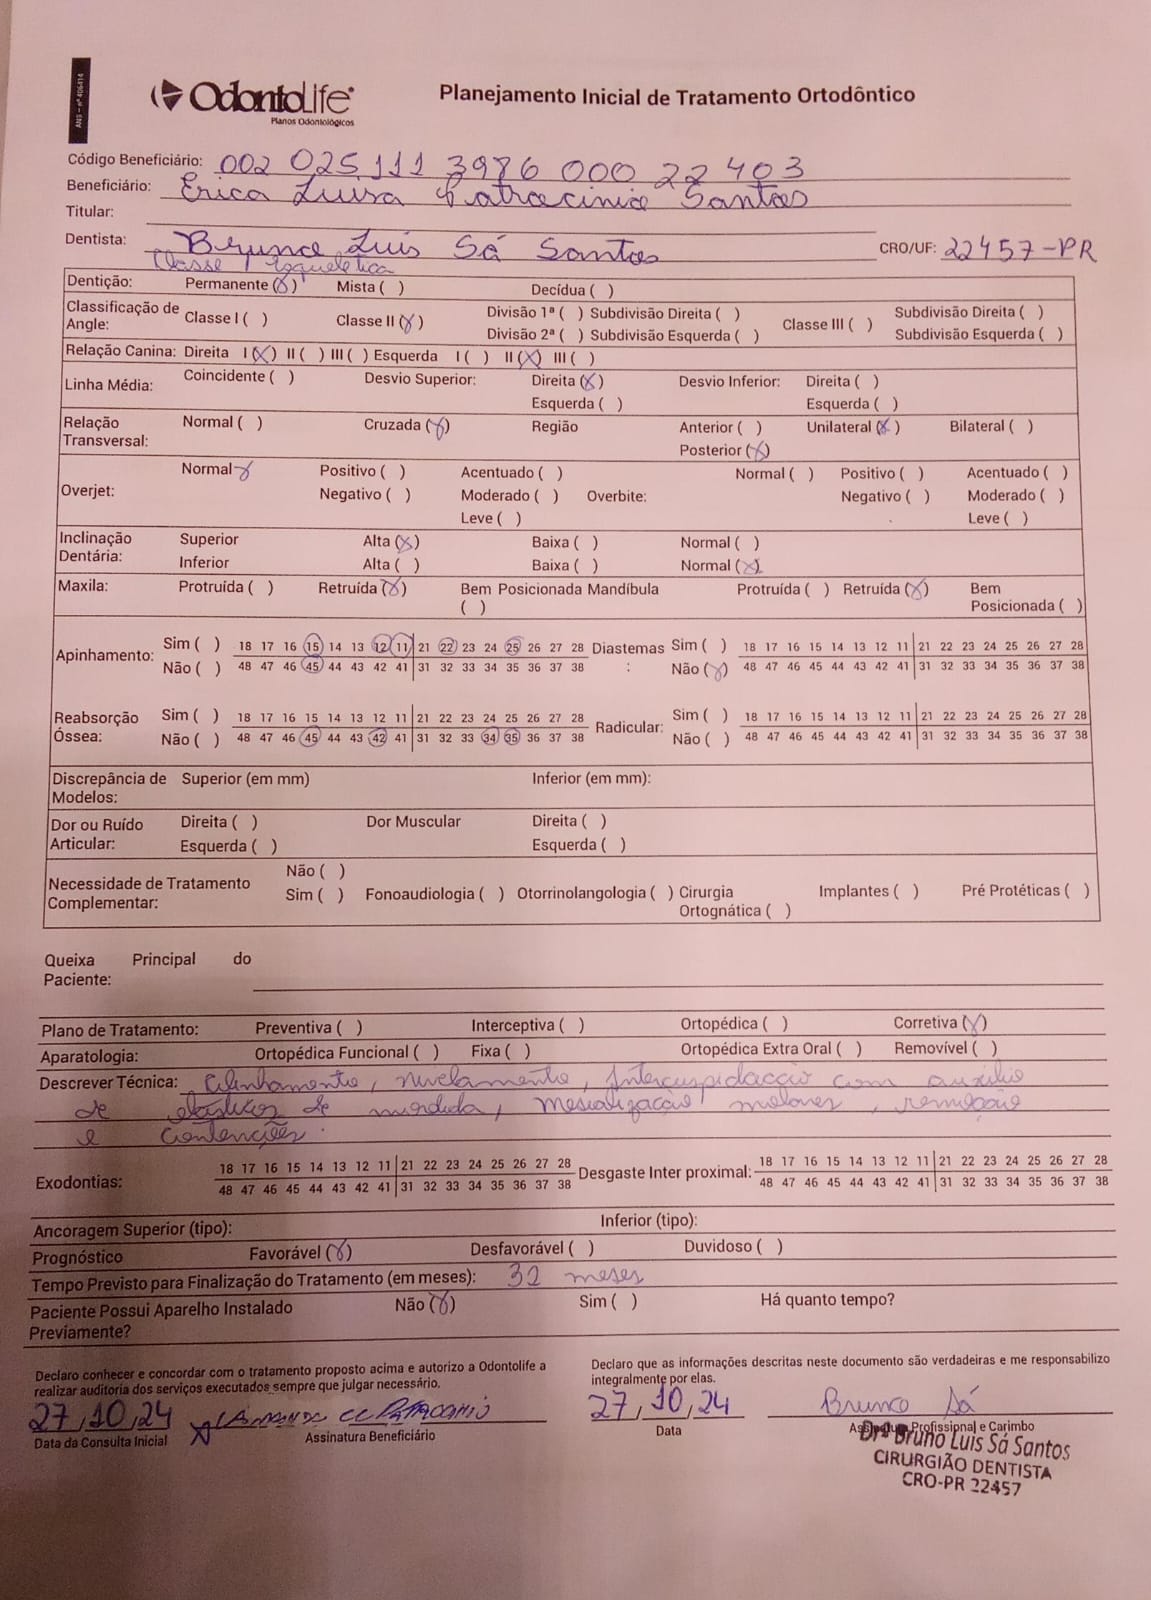 ANS - nº 406414
OdontoLife®
Planos Odontológicos
Planejamento Inicial de Tratamento Ortodôntico
Código Beneficiário: 002 025 111 3986 000 22 403
Beneficiário: Erica Luisa Patrocinio Santos
Titular:
Dentista: Bruno Luis Sá Santos CRO/UF: 22457-PR
Classe I Esquelética
Dentição: Permanente (X) Mista ( ) Decídua ( )
Classificação de Angle: Classe I ( ) Classe II (X) Divisão 1ª ( ) Subdivisão Direita ( ) Classe III ( ) Subdivisão Direita ( )
Divisão 2ª ( ) Subdivisão Esquerda ( ) Subdivisão Esquerda ( )
Relação Canina: Direita I (X) II ( ) III ( ) Esquerda I ( ) II (X) III ( )
Linha Média: Coincidente ( ) Desvio Superior: Direita (X) Desvio Inferior: Direita ( )
Esquerda ( ) Esquerda ( )
Relação Transversal: Normal ( ) Cruzada (X) Região Anterior ( ) Unilateral (X) Bilateral ( )
Posterior (X)
Overjet: Normal X Positivo ( ) Acentuado ( ) Normal ( ) Positivo ( ) Acentuado ( )
Negativo ( ) Moderado ( ) Overbite: Negativo ( ) Moderado ( )
Leve ( ) Leve ( )
Inclinação Dentária: Superior Alta (X) Baixa ( ) Normal ( )
Inferior Alta ( ) Baixa ( ) Normal (X)
Maxila: Protruída ( ) Retruída (X) Bem Posicionada ( ) Mandíbula Protruída ( ) Retruída (X) Bem Posicionada ( )
Apinhamento: Sim ( ) 18 17 16 15 14 13 12 11 21 22 23 24 25 26 27 28 Diastemas: Sim ( ) 18 17 16 15 14 13 12 11 21 22 23 24 25 26 27 28
Não ( ) 48 47 46 45 44 43 42 41 31 32 33 34 35 36 37 38 Não (X) 48 47 46 45 44 43 42 41 31 32 33 34 35 36 37 38
Reabsorção Óssea: Sim ( ) 18 17 16 15 14 13 12 11 21 22 23 24 25 26 27 28 Radicular: Sim ( ) 18 17 16 15 14 13 12 11 21 22 23 24 25 26 27 28
Não ( ) 48 47 46 45 44 43 42 41 31 32 33 34 35 36 37 38 Não ( ) 48 47 46 45 44 43 42 41 31 32 33 34 35 36 37 38
Discrepância de Modelos: Superior (em mm) Inferior (em mm):
Dor ou Ruído Articular: Direita ( ) Dor Muscular Direita ( )
Esquerda ( ) Esquerda ( )
Necessidade de Tratamento Complementar: Não ( )
Sim ( ) Fonoaudiologia ( ) Otorrinolangologia ( ) Cirurgia Ortognática ( ) Implantes ( ) Pré Protéticas ( )
Queixa Principal do Paciente:
Plano de Tratamento: Preventiva ( ) Interceptiva ( ) Ortopédica ( ) Corretiva (X)
Aparatologia: Ortopédica Funcional ( ) Fixa ( ) Ortopédica Extra Oral ( ) Removível ( )
Descrever Técnica: Alinhamento, nivelamento, Intercuspidação com auxilio
de elásticos de mordida, mesialização molares, remoção
e contenções.
Exodontias: 18 17 16 15 14 13 12 11 21 22 23 24 25 26 27 28 Desgaste Inter proximal: 18 17 16 15 14 13 12 11 21 22 23 24 25 26 27 28
48 47 46 45 44 43 42 41 31 32 33 34 35 36 37 38 48 47 46 45 44 43 42 41 31 32 33 34 35 36 37 38
Ancoragem Superior (tipo): Inferior (tipo):
Prognóstico Favorável (X) Desfavorável ( ) Duvidoso ( )
Tempo Previsto para Finalização do Tratamento (em meses): 32 meses
Paciente Possui Aparelho Instalado Previamente? Não (X) Sim ( ) Há quanto tempo?
Declaro conhecer e concordar com o tratamento proposto acima e autorizo a Odontolife a
realizar auditoria dos serviços executados sempre que julgar necessário.
Declaro que as informações descritas neste documento são verdadeiras e me responsabilizo
integralmente por elas.
27,10,24 27,10,24 Bruno Sá
Data da Consulta Inicial Assinatura Beneficiário Data Assinatura Profissional e Carimbo
Dr. Bruno Luis Sá Santos
CIRURGIÃO DENTISTA
CRO-PR 22457